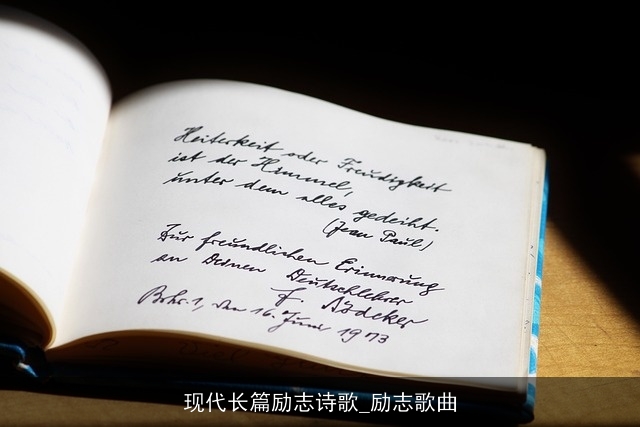 Heiterkeit oder Freudigkeit
ist der Himmel,
unter dem alles gedeiht.
(Jean Paul)
Zur freundlichen Erinnerung
an Deinen Deutschlehrer
Bchr. 1, den 16. Juni 1973
现代长篇励志诗歌_励志歌曲